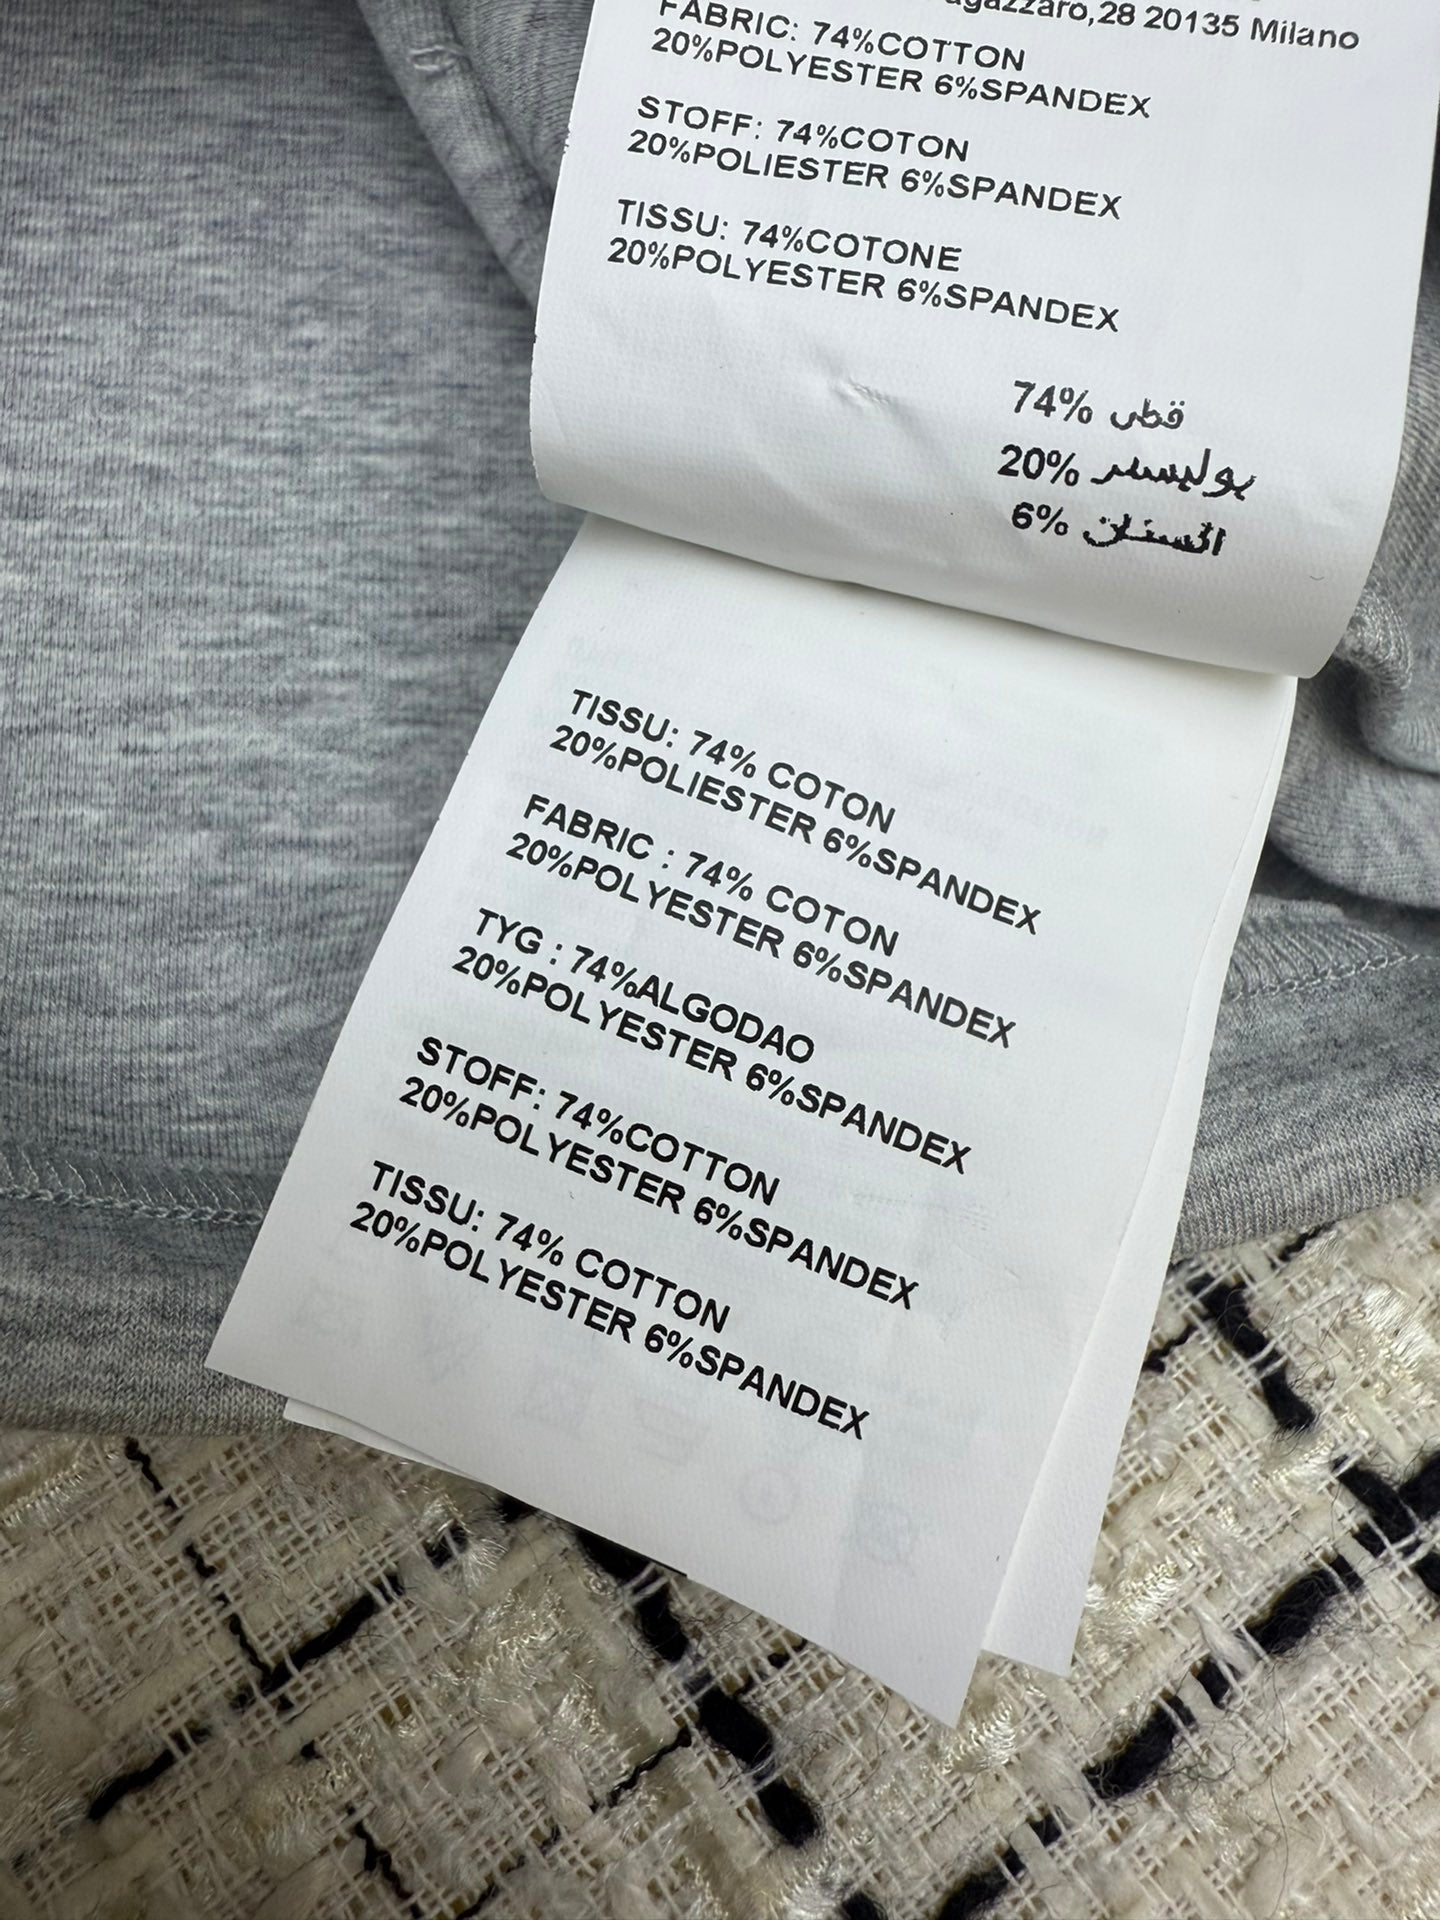 20135 Milano
FABRIC: 74%COTTON
20%POLYESTER 6%SPANDEX
STOFF: 74%COTON
20%POLIESTER 6%SPANDEX
TISSU: 74%COTONE
20%POLYESTER 6%SPANDEX
74% قطن
20% بوليستر
6%
TISSU: 74% COTON
20%POLIESTER 6%SPANDEX
FABRIC : 74% COTON
20%POLYESTER 6%SPANDEX
TYG : 74%ALGODAO
20%POLYESTER 6%SPANDEX
STOFF: 74%COTTON
20%POLYESTER 6%SPANDEX
TISSU: 74% COTTON
20%POLYESTER 6%SPANDEX